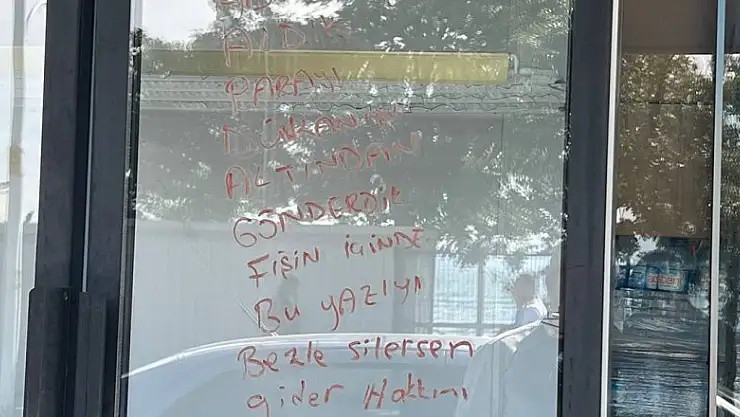 ALDIK
PARAYI
DÜKKANIN
ALTINDAN
GÖNDERDİK
FİŞİN İÇİNDE
Bu yazıyı
Bezle silersen
gider Hakkını